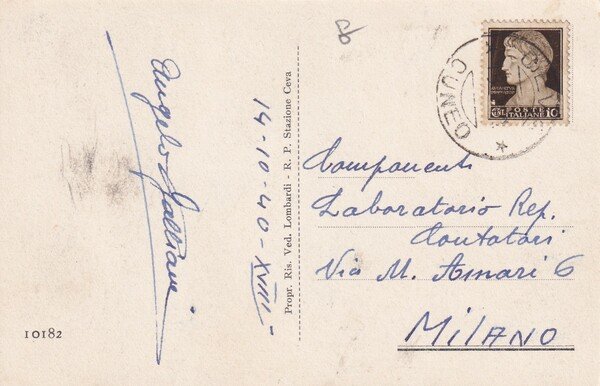 Angelo Galliani
14-10-40-XVIII
10182
Propr. Ris. Ved. Lombardi - R. P. Stazione Ceva
CUNEO
POSTE
ITALIANE
CENT. 10
Componenti
Laboratorio Rep.
Contatori
Via M. Amari 6
MILANO